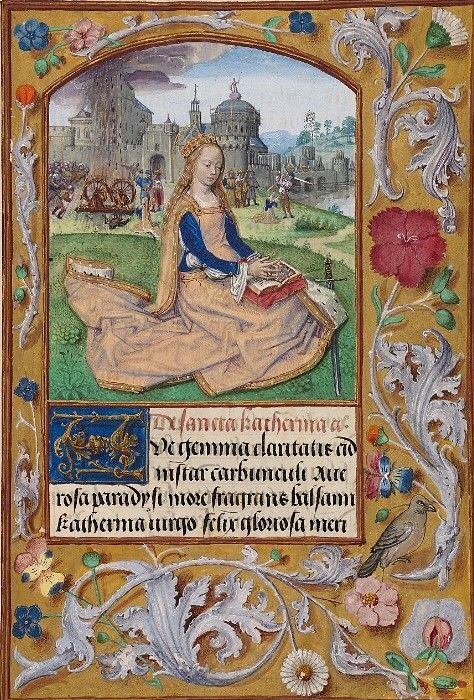 De sancta katherina a
Ave gemma claritatis ad
instar carbunculi Ave
rosa paradysi more fragrans balsami
katherina virgo felix gloriosa meri